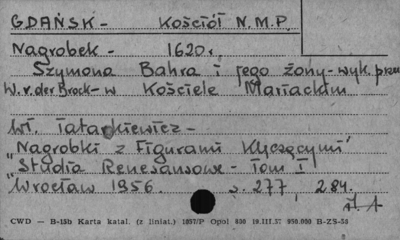 GDAŃSK - Kościół N.M.P.
Nagrobek - 1620 r.
Szymona Bahra i jego żony - wyk. przez
W. v. der Brock - w Kościele Mariackim
Wł. Tatarkiewicz -
"Nagrobki z Figurami Klęczącymi"
"Studia Renesansowe - Tom I
Wrocław 1956. s. 277, 284.
CWD — B-15b Karta katal. (z liniat.) 1057/P Opol 830 19.III.57 950.000 B-ZS-50